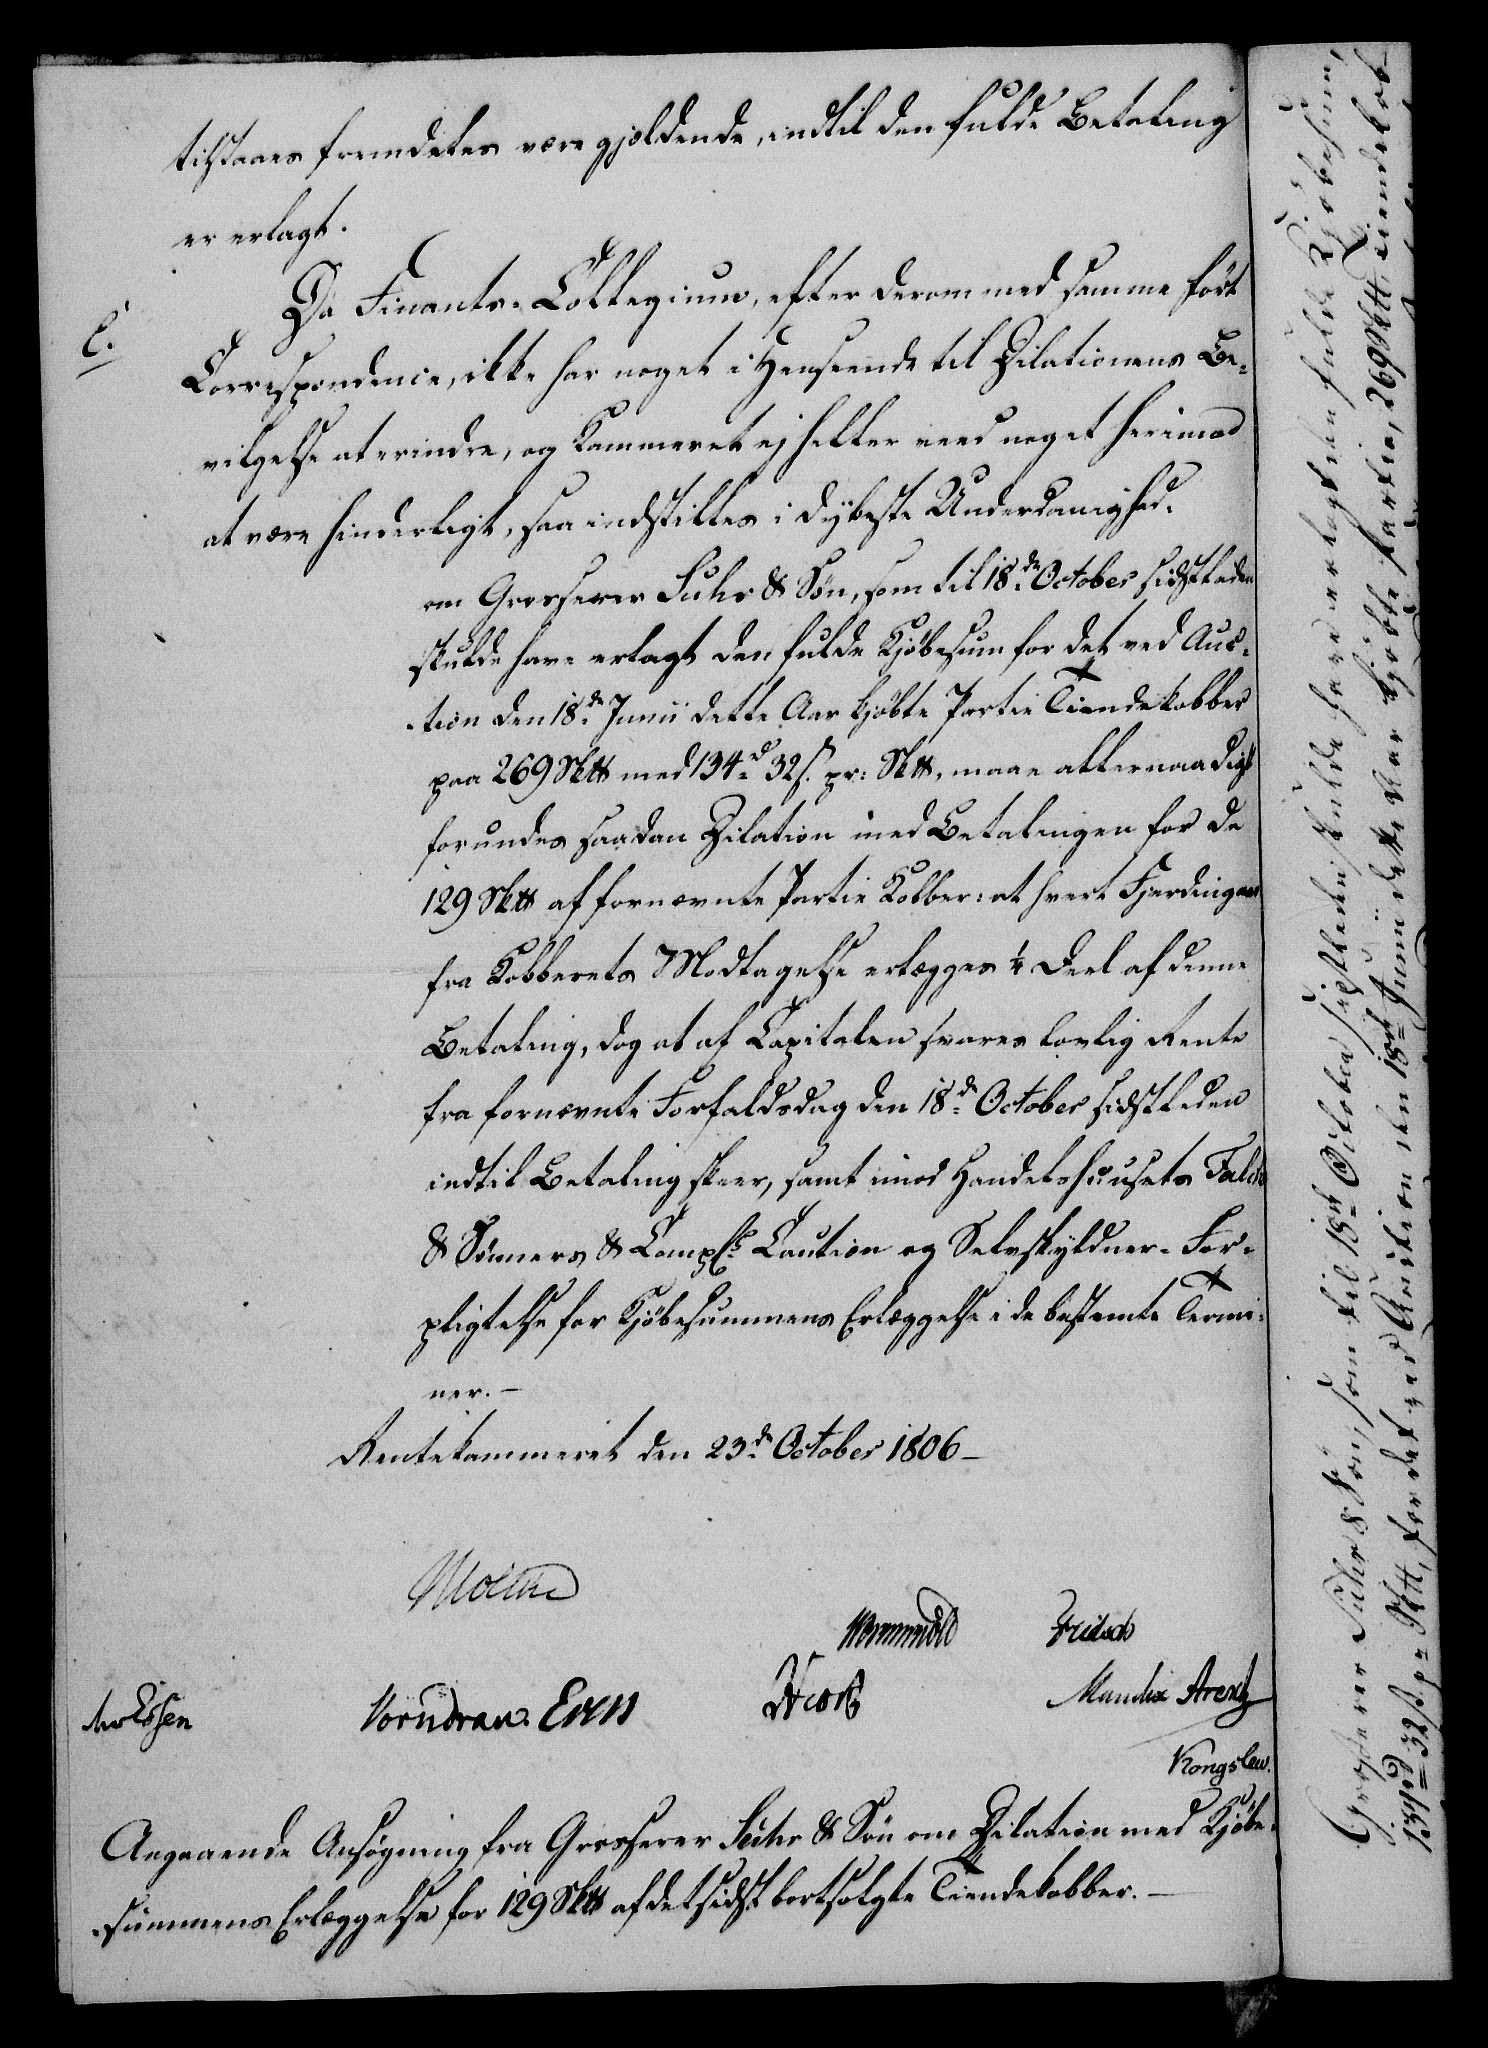 tilstaaes fremdeles være gjældende, indtil den fulde Betaling
er erlagt.
C.
Da Finants-Collegium, efter derom med samme ført
Correspondence, ikke har noget i Henseende til Dilationens Be-
vilgelse at erindre, og Kammeret ej heller veed noget herimod
at være hinderligt, saa indstilles i dybeste Underdanighed.
om Grosserer Suhr & Søn, som til 18de October sidstleden
skulde have erlagt den fulde Kjøbesum for det ved Auc-
tion den 18de Junii dette Aar kjøbte Partie Tiendekobber
paa 269 Sk℔ med 134rd 32s. pr: Sk℔, maae allernaadigst
forundes saadan Dilation med Betalingen for de
129 Sk℔ af fornævnte Partie Kobber: at hvert Fjerdingaar
fra Kobberets Modtagelse erlægges ¼ Deel af denne
Betaling, dog at af Capitalen svares lovlig Rente
fra fornævnte Forfaldsdag den 18de October sidstleden
indtil Betaling skeer, samt imod Handelshuusets
& Sønners & Comps Caution og Selvskyldner-For-
pligtelse for Kjøbesummens Erlæggelse i de bestemte Termi-
ner.—
Rentekammeret den 23de October 1806—
Moltke
Wormskiold Fritsch
Vorndran. Manthe Arentz
Kongslew.
Angaaende Ansøgning fra Grosserer Suhr & Søn om Dilation med Kjøbe-
summens Erlæggelse for 129 Sk℔ af det sidst bortsolgte Tiendekobber.—
Grosserer Suhr & Søn, som til 18de October sidstleden skulde have erlagt den fulde Kjøbesum,
134rd 32s pr Sk℔, for det ved Auction den 18de Junii dette Aar kjøbte Partie, 269 Sk℔ Tiendekob-